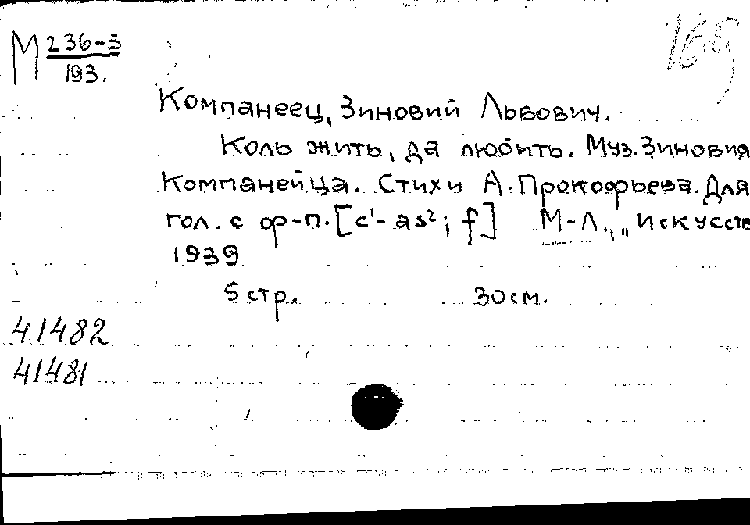 М 236-3
193.
169
Компанеец, Зиновий Львович.
Коль жить, да любить. Муз. Зиновия
Компанейца. Стихи А. Прокофьева. Для
гол. с ф-п. [c¹-as²; f] М-Л., „Искусств
1939
5 стр. 30 см.
41482
41481